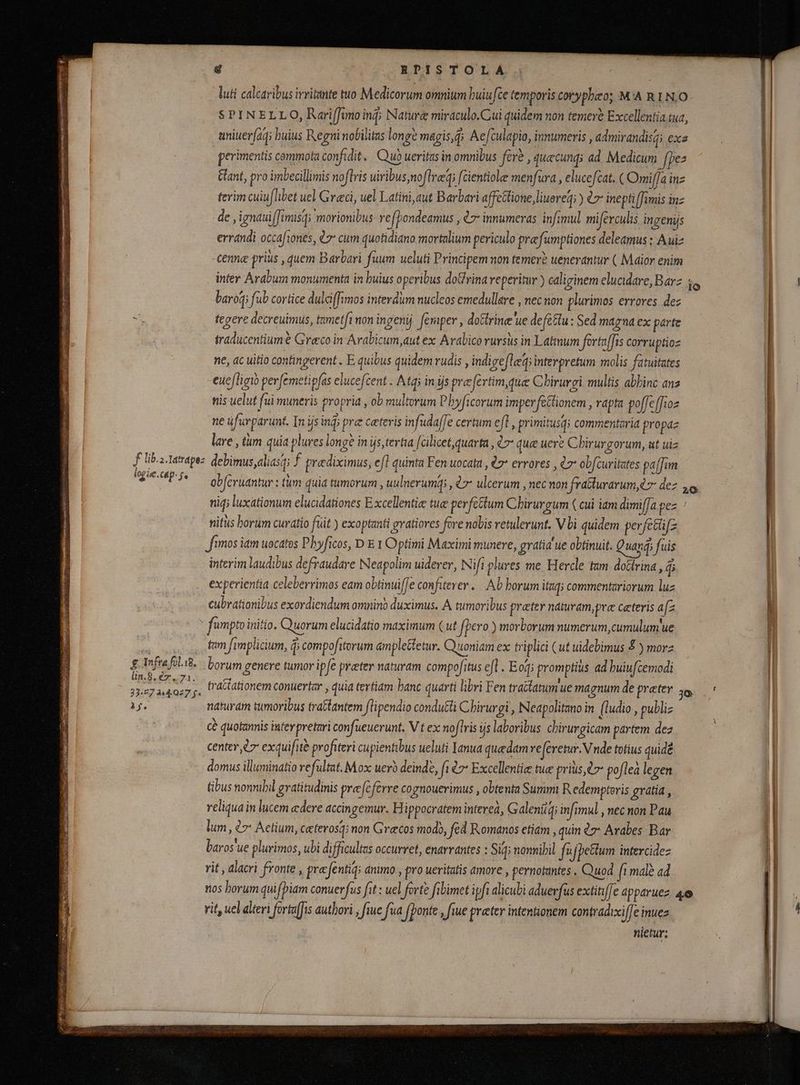 6 EPISTOLA
luti calcaribus irritante tuo Medicorum omnium huiusce temporis coryphæo; MARINO
SPINELLO, Rarissimo inq; Naturæ miraculo. Cui quidem non temerè Excellentia tua,
uniuersaq; huius Regni nobilitas longè magis, q̃; Aesculapio, innumeris, admirandisq; exa
perimentis commota confidit. Quò ueritas in omnibus ferè, quæcunq; ad Medicum spea
ctant, pro imbecillimis nostris uiribus, nostræq; scientiolæ mensura, elucescat. (Omissa ina
terim cuiuslibet uel Græci, uel Latini, aut Barbari affectione, liuoreq;) & ineptissimis ina
de, ignauissimisq; morionibus respondeamus, & innumeras infimul miserculis ingenijs
errandi occasiones, & cum quotidiano mortalium periculo præsumptiones deleamus: Auia
cennæ prius, quem Barbari suum ueluti Principem non temerè uenerantur (Maior enim
inter Arabum monumenta in huius operibus doctrina reperitur) caliginem elucidare, Bara 10
baroq; sub cortice dulcissimos interdum nucleos emedullare, nec non plurimos errores dea
tegere decreuimus, tametsi non ingenij semper, doctrinæ'ue defectu: Sed magna ex parte
traducentium è Græco in Arabicum, aut ex Arabico rursùs in Latinum fortassis corruptioa
ne, ac uitio contingerent. E quibus quidem rudis, indigestæq; interpretum molis fatuitates
euestigiò persemetipsas elucescent. Atq; in ijs præsertim, quæ Chirurgi multis abhinc ana
nis uelut sui muneris propria, ob multorum Physicorum imperfectionem, rapta possessioa
ne usurparunt. In ijs inq; præ cæteris insudasse certum est, primitusq; commentaria propaa
lare, tùm quia plures longè in ijs, tertia scilicet, quarta, & quæ uerè Chirurgorum, ut uia
f lib.2.Iatrapea debimus, aliasq; f prædiximus, est quinta Fen uocata, & errores, & obscuritates passim
logiæ.cap.5. obseruantur: tùm quia tumorum, uulnerumq;, & ulcerum, nec non fracturarum, & dea 20
niq; luxationum elucidationes Excellentiæ tuæ perfectum Chirurgum (cui iam dimissa pea
nitùs horum curatio fuit) exoptanti gratiores fore nobis retulerunt. Vbi quidem perfectisa
simos iam uocatos Physicos, DEI Optimi Maximi munere, gratia'ue obtinuit. Quanq; suis
interim laudibus defraudare Neapolim uiderer, Nisi plures me Hercle tam doctrina, q̃;
experientia celeberrimos eam obtinuisse confiterer. Ab horum itaq; commentariorum lua
cubrationibus exordiendum omninò duximus. A tumoribus præter naturam, præ cæteris asa
sumpto initio. Quorum elucidatio maximum (ut spero) morborum numerum, cumulum'ue
tam simplicium, q̃; compositorum amplectetur. Quoniam ex triplici (ut uidebimus g) mora
g Infra fol.18. borum genere tumor ipse præter naturam compositus est. Eoq; promptiùs ad huiuscemodi
lin.8. & .71. tractationem conuertar, quia tertiam hanc quarti libri Fen tractatum'ue magnum de præter 30
25. naturam tumoribus tractantem stipendio conducti Chirurgi, Neapolitano in studio, publia
cè quotannis interpretari consueuerunt. Vt ex nostris ijs laboribus chirurgicam partem dea
center, & exquisitè profiteri cupientibus ueluti Ianua quædam referetur. Vnde totius quidẽ
domus illuminatio resultat. Mox uerò deinde, si & Excellentiæ tuæ priùs, & posteà legen
tibus nonnihil gratitudinis præseferre cognouerimus, obtenta Summi Redemptoris gratia,
reliqua in lucem ædere accingemur. Hippocratem intereà, Galenũq; infimul, nec non Pau
lum, & Aetium, cæterosq; non Græcos modò, sed Romanos etiam, quin & Arabes Bar
baros'ue plurimos, ubi difficultas occurret, enarrantes: Siq; nonnihil suspectum intercidea
rit, alacri fronte, præsentiq; animo, pro ueritatis amore, pernotantes. Quod si malè ad
nos horum quispiam conuersus sit: uel fortè sibimet ipsi alicubi aduersus extitisse apparuea 40
rit, uel alteri fortassis authori, siue sua sponte, siue præter intentionem contradixisse inuea
nietur;